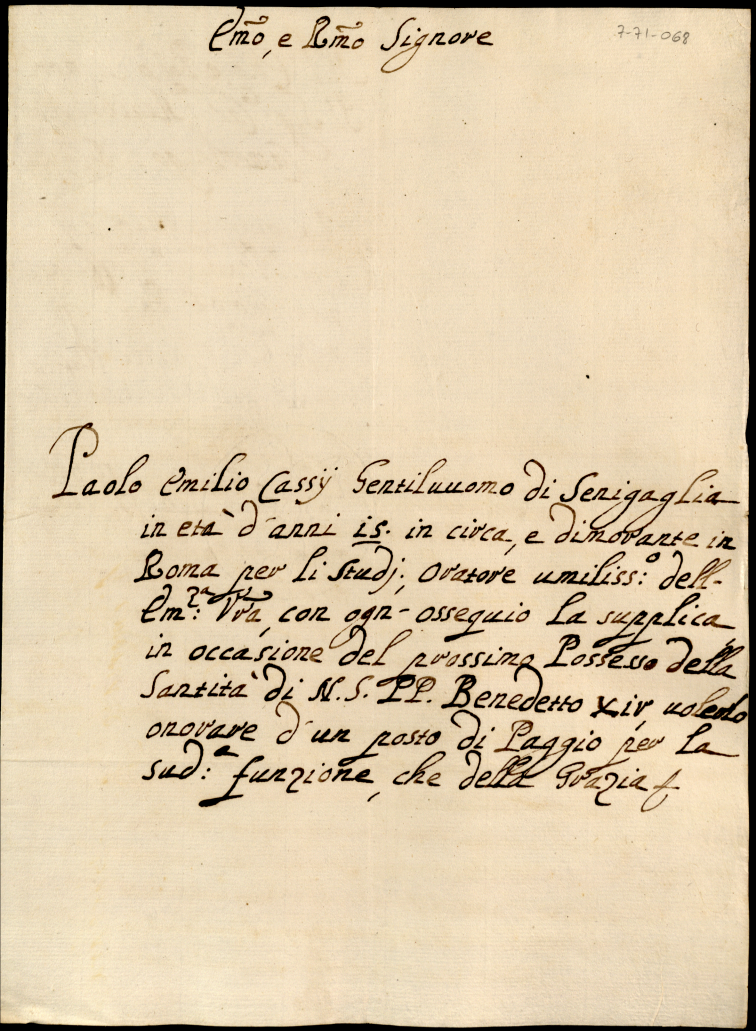 Em̃o, e Rm̃o Signore
7-71-068
Paolo Emilio Cassÿ Gentiluuomo di Senigaglia
in età d'anni 15. in circa, e dimorante in
Roma per li Studj, Oratore umiliss:o dell-
Em:za Vr̃a, con ogn- ossequio la supplica
in occasione del prossimo Possesso della
Santità di N. S. PP. Benedetto XIV, uolerlo
onorare d'un posto di Paggio per la
sud:a funzione, che della Grazia